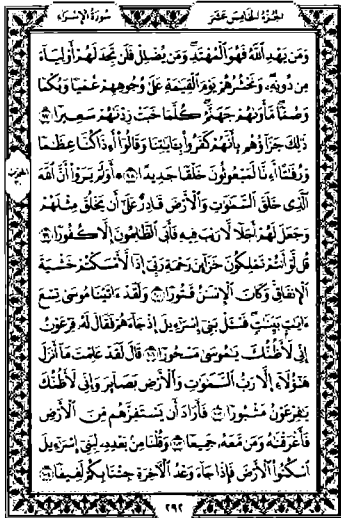 الجزء الخامس عشر
سورة الإسراء
وَمَن يَهْدِ ٱللَّهُ فَهُوَ ٱلْمُهْتَدِ وَمَن يُضْلِلْ فَلَن تَجِدَ لَهُمْ أَوْلِيَآءَ
مِن دُونِهِۦ وَنَحْشُرُهُمْ يَوْمَ ٱلْقِيَٰمَةِ عَلَىٰ وُجُوهِهِمْ عُمْيًا وَبُكْمًا
وَصُمًّا مَّأْوَىٰهُمْ جَهَنَّمُ كُلَّمَا خَبَتْ زِدْنَٰهُمْ سَعِيرًا ٩٧
ذَٰلِكَ جَزَآؤُهُم بِأَنَّهُمْ كَفَرُوا۟ بِـَٔايَٰتِنَا وَقَالُوٓا۟ أَءِذَا كُنَّا عِظَٰمًا
وَرُفَٰتًا أَءِنَّا لَمَبْعُوثُونَ خَلْقًا جَدِيدًا ٩٨ ۞ أَوَلَمْ يَرَوْا۟ أَنَّ ٱللَّهَ
ٱلَّذِى خَلَقَ ٱلسَّمَٰوَٰتِ وَٱلْأَرْضَ قَادِرٌ عَلَىٰٓ أَن يَخْلُقَ مِثْلَهُمْ
وَجَعَلَ لَهُمْ أَجَلًا لَّا رَيْبَ فِيهِ فَأَبَى ٱلظَّٰلِمُونَ إِلَّا كُفُورًا ٩٩
قُل لَّوْ أَنتُمْ تَمْلِكُونَ خَزَآئِنَ رَحْمَةِ رَبِّىٓ إِذًا لَّأَمْسَكْتُمْ خَشْيَةَ
ٱلْإِنفَاقِ وَكَانَ ٱلْإِنسَٰنُ قَتُورًا ١٠٠ وَلَقَدْ ءَاتَيْنَا مُوسَىٰ تِسْعَ
ءَايَٰتٍۭ بَيِّنَٰتٍ فَسْـَٔلْ بَنِىٓ إِسْرَٰٓءِيلَ إِذْ جَآءَهُمْ فَقَالَ لَهُۥ فِرْعَوْنُ
إِنِّى لَأَظُنُّكَ يَٰمُوسَىٰ مَسْحُورًا ١٠١ قَالَ لَقَدْ عَلِمْتَ مَآ أَنزَلَ
هَٰٓؤُلَآءِ إِلَّا رَبُّ ٱلسَّمَٰوَٰتِ وَٱلْأَرْضِ بَصَآئِرَ وَإِنِّى لَأَظُنُّكَ
يَٰفِرْعَوْنُ مَثْبُورًا ١٠٢ فَأَرَادَ أَن يَسْتَفِزَّهُم مِّنَ ٱلْأَرْضِ
فَأَغْرَقْنَٰهُ وَمَن مَّعَهُۥ جَمِيعًا ١٠٣ وَقُلْنَا مِنۢ بَعْدِهِۦ لِبَنِىٓ إِسْرَٰٓءِيلَ
ٱسْكُنُوا۟ ٱلْأَرْضَ فَإِذَا جَآءَ وَعْدُ ٱلْءَاخِرَةِ جِئْنَا بِكُمْ لَفِيفًا ١٠٤
٢٩٢